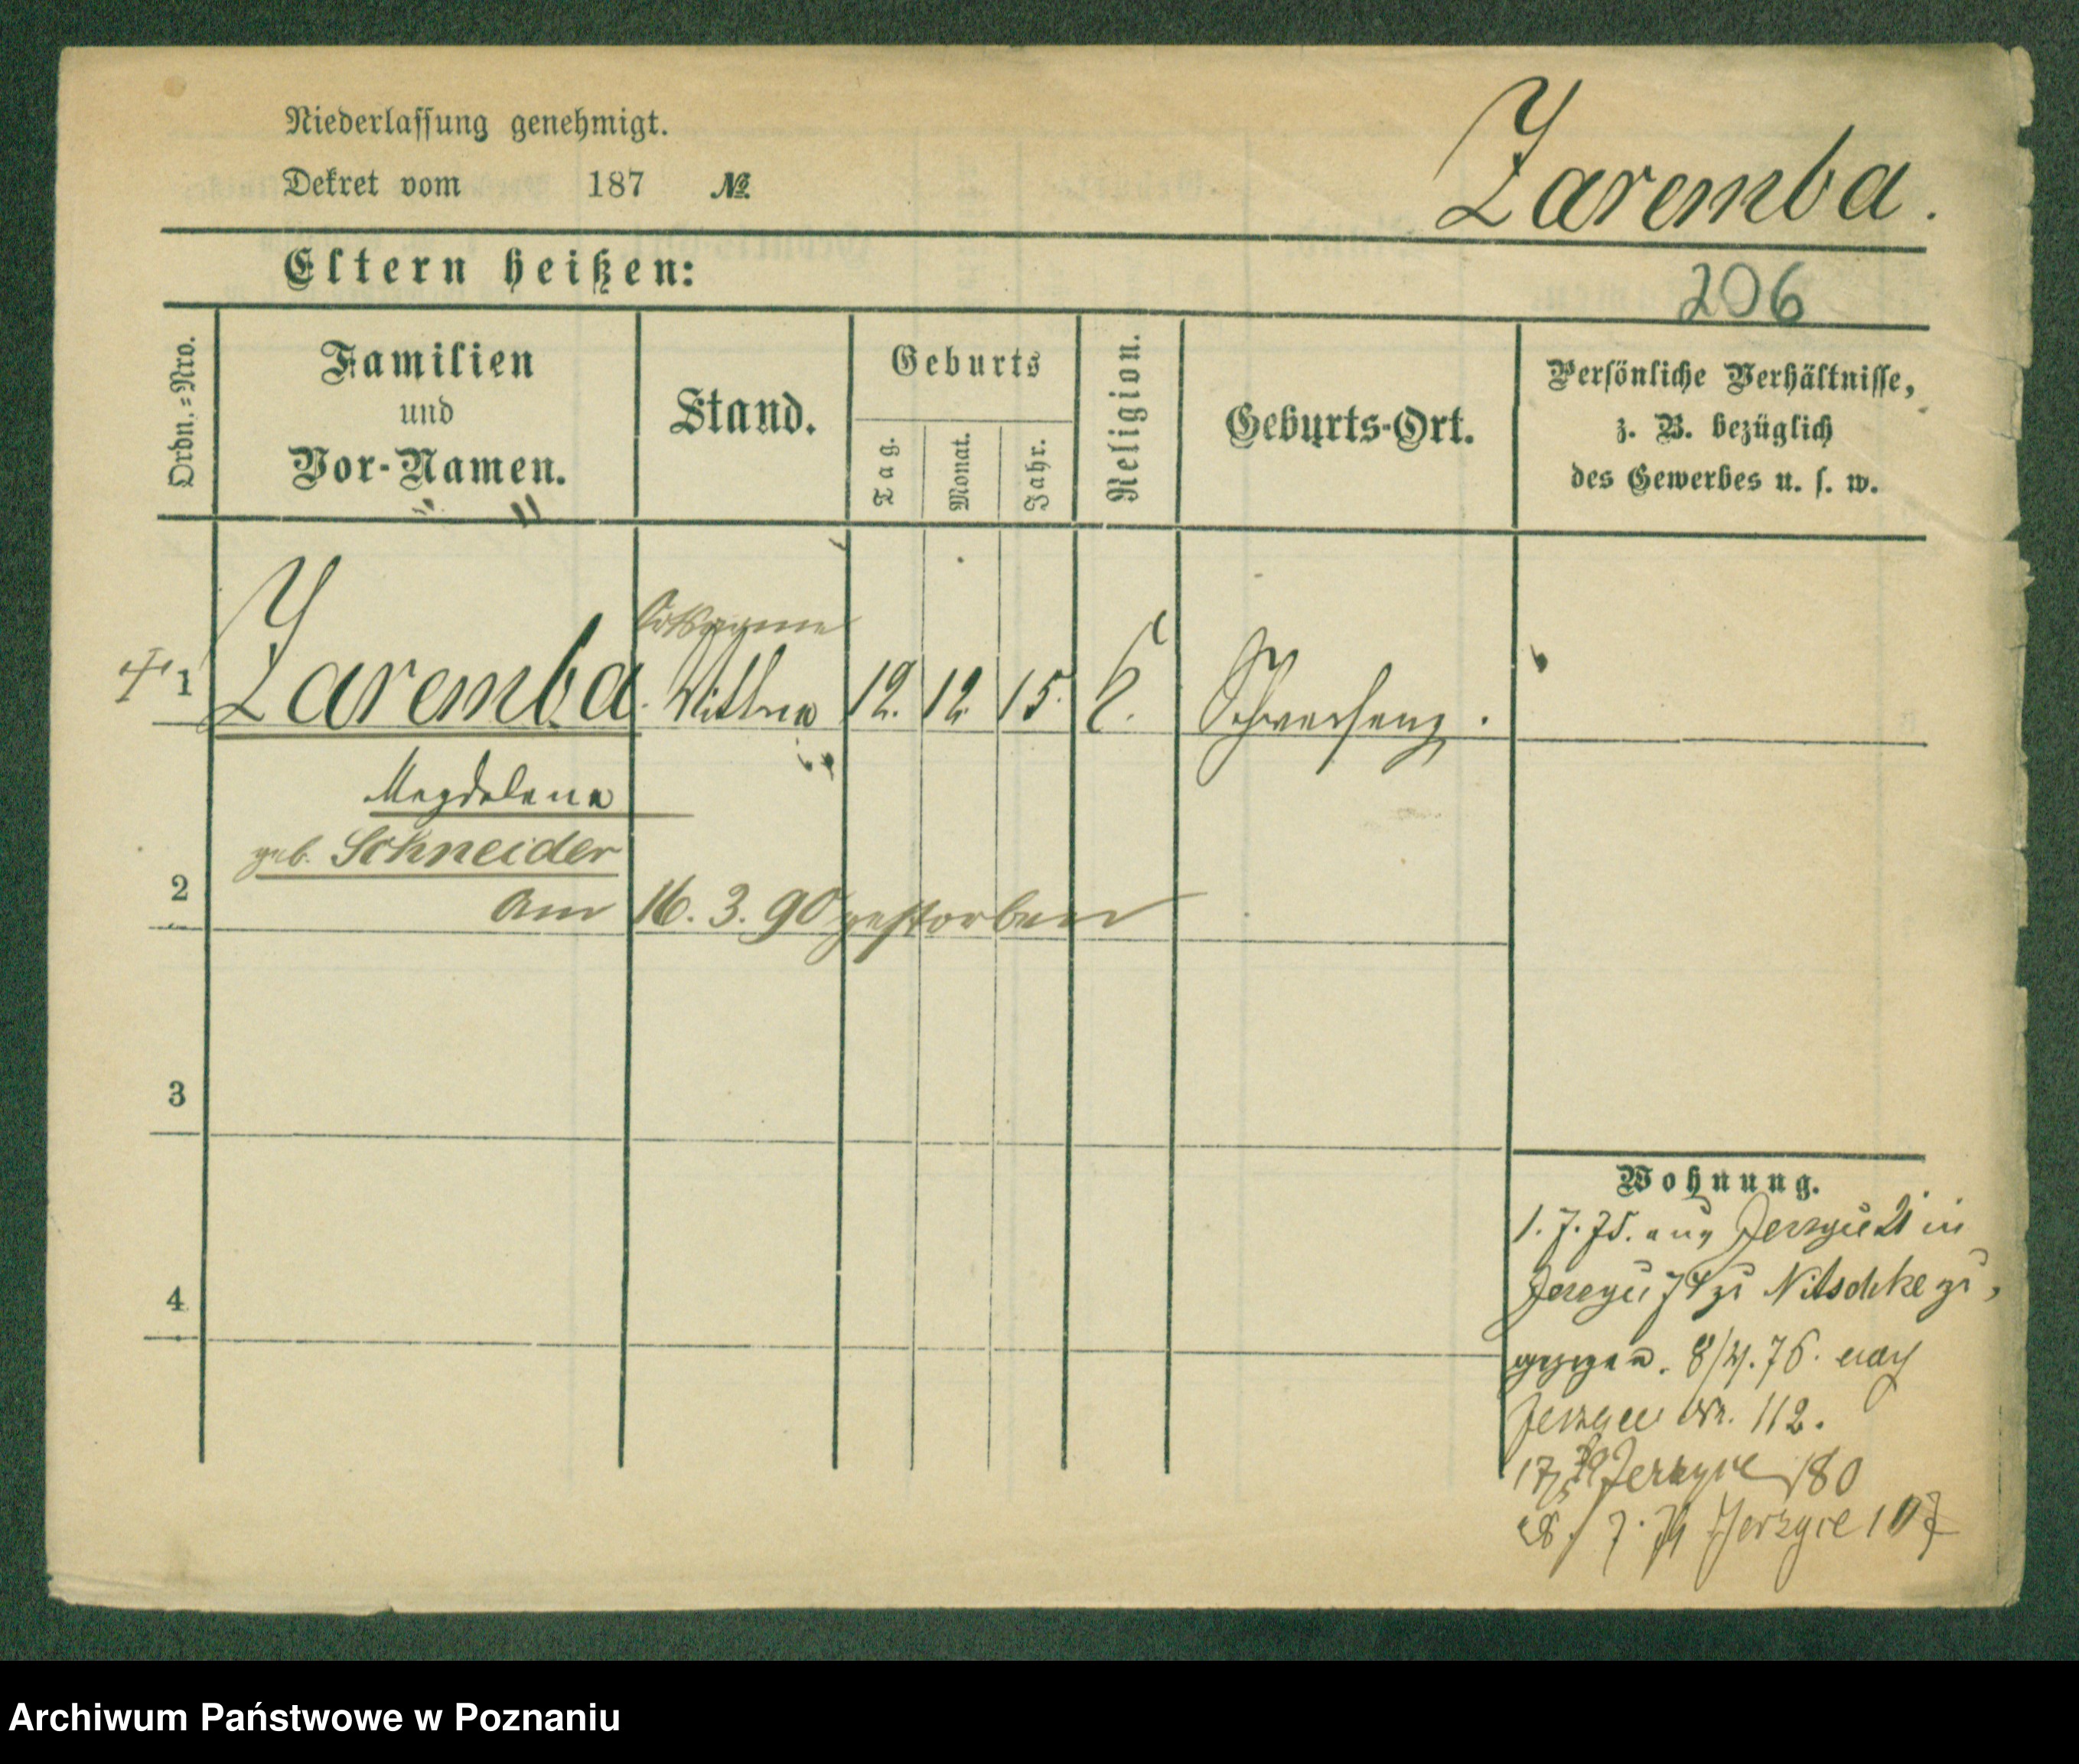 Niederlassung genehmigt.
Dekret vom 187 №
Zaremba.
Eltern heißen:
206
Ordn.-Nro.
Familien
und
Vor-Namen.
Stand.
Geburts
Tag.
Monat.
Jahr.
Religion.
Geburts-Ort.
Persönliche Verhältnisse,
z. B. bezüglich
des Gewerbes u. s. w.
1 Zaremba. Wittwe 12. 12. 15. k. Schwersenz.
Magdalena
geb. Schneider
2 am 16. 3. 90 gestorben
3
4
Wohnung.
1. 7. 75. aus Jerzyce 21 in
Jerzyce 74 zu Nitschke ge-
zogen. 8/4. 76. nach
Jerzyce Nr. 112.
Jerzyce 180
Jerzyce 107
Archiwum Państwowe w Poznaniu